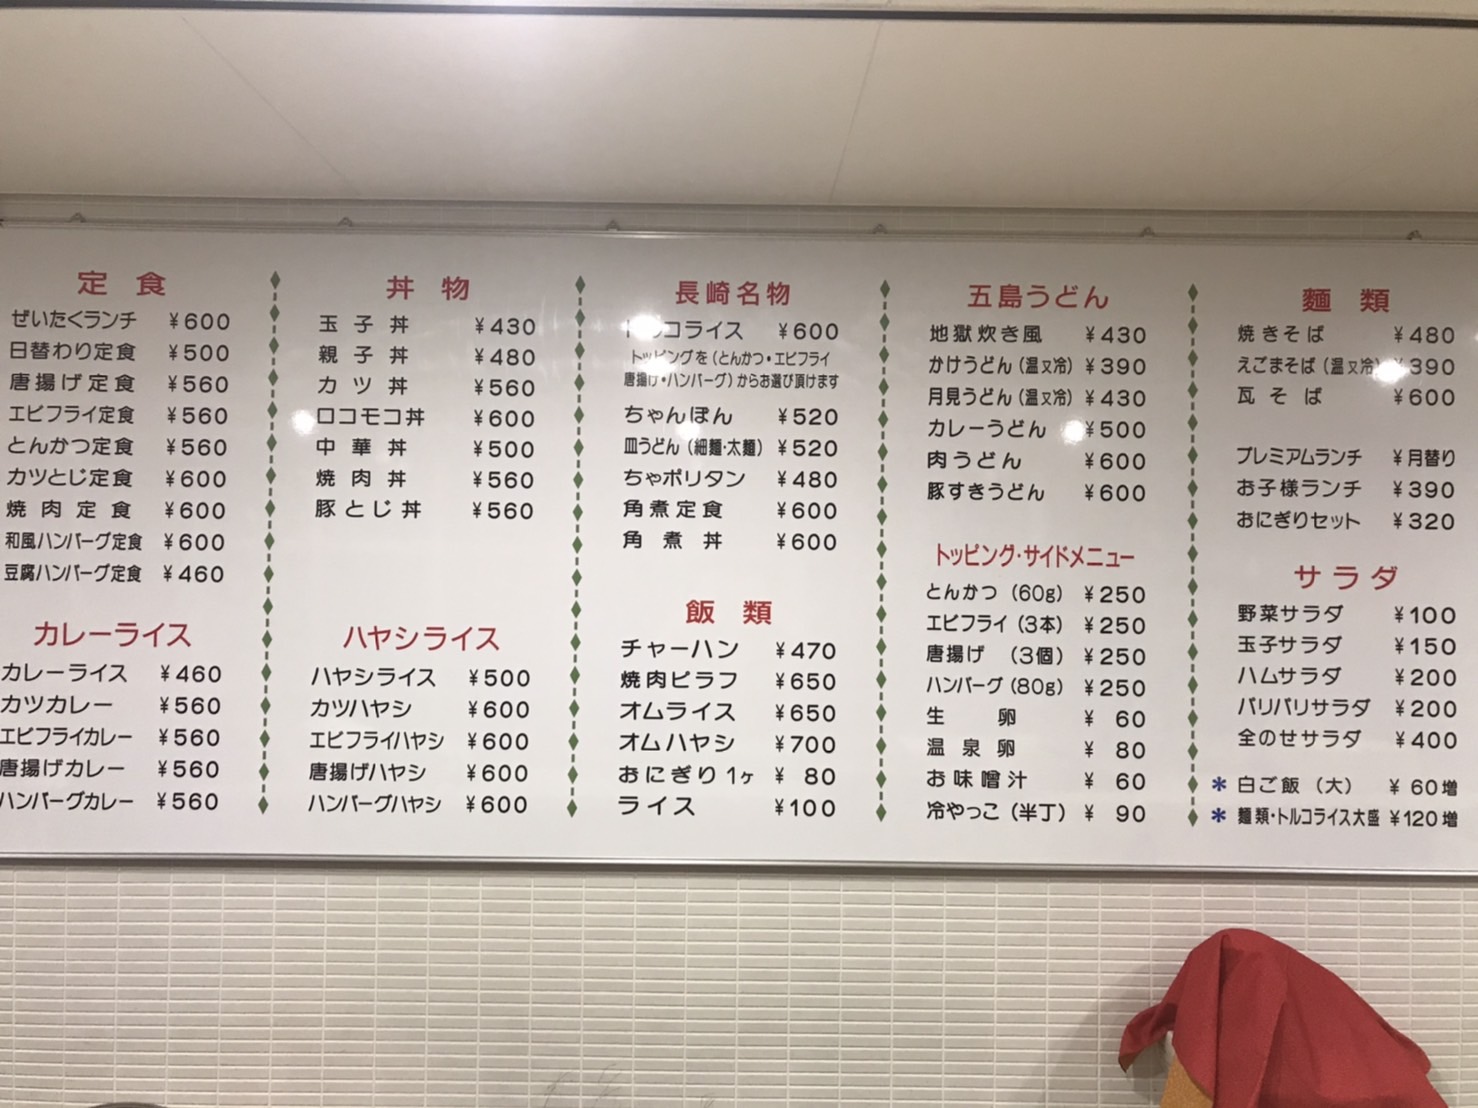 定食
ぜいたくランチ ¥600
日替わり定食 ¥500
唐揚げ定食 ¥560
エビフライ定食 ¥560
とんかつ定食 ¥560
カツとじ定食 ¥600
焼肉定食 ¥600
和風ハンバーグ定食 ¥600
豆腐ハンバーグ定食 ¥460
カレーライス
カレーライス ¥460
カツカレー ¥560
エビフライカレー ¥560
唐揚げカレー ¥560
ハンバーグカレー ¥560
丼物
玉子丼 ¥430
親子丼 ¥480
カツ丼 ¥560
ロコモコ丼 ¥600
中華丼 ¥500
焼肉丼 ¥560
豚とじ丼 ¥560
ハヤシライス
ハヤシライス ¥500
カツハヤシ ¥600
エビフライハヤシ ¥600
唐揚げハヤシ ¥600
ハンバーグハヤシ ¥600
長崎名物
トルコライス ¥600
トッピングを(とんかつ・エビフライ
唐揚げ・ハンバーグ)からお選び頂けます
ちゃんぽん ¥520
皿うどん(細麺・太麺) ¥520
ちゃポリタン ¥480
角煮定食 ¥600
角煮丼 ¥600
飯類
チャーハン ¥470
焼肉ピラフ ¥650
オムライス ¥650
オムハヤシ ¥700
おにぎり1ヶ ¥80
ライス ¥100
五島うどん
地獄炊き風 ¥430
かけうどん(温又冷) ¥390
月見うどん(温又冷) ¥430
カレーうどん ¥500
肉うどん ¥600
豚すきうどん ¥600
トッピング・サイドメニュー
とんかつ(60g) ¥250
エビフライ(3本) ¥250
唐揚げ(3個) ¥250
ハンバーグ(80g) ¥250
生卵 ¥60
温泉卵 ¥80
お味噌汁 ¥60
冷やっこ(半丁) ¥90
麺類
焼きそば ¥480
えごまそば(温又冷) ¥390
瓦そば ¥600
プレミアムランチ ¥月替り
お子様ランチ ¥390
おにぎりセット ¥320
サラダ
野菜サラダ ¥100
玉子サラダ ¥150
ハムサラダ ¥200
パリパリサラダ ¥200
全のせサラダ ¥400
*白ご飯(大) ¥60増
*麺類・トルコライス大盛 ¥120増